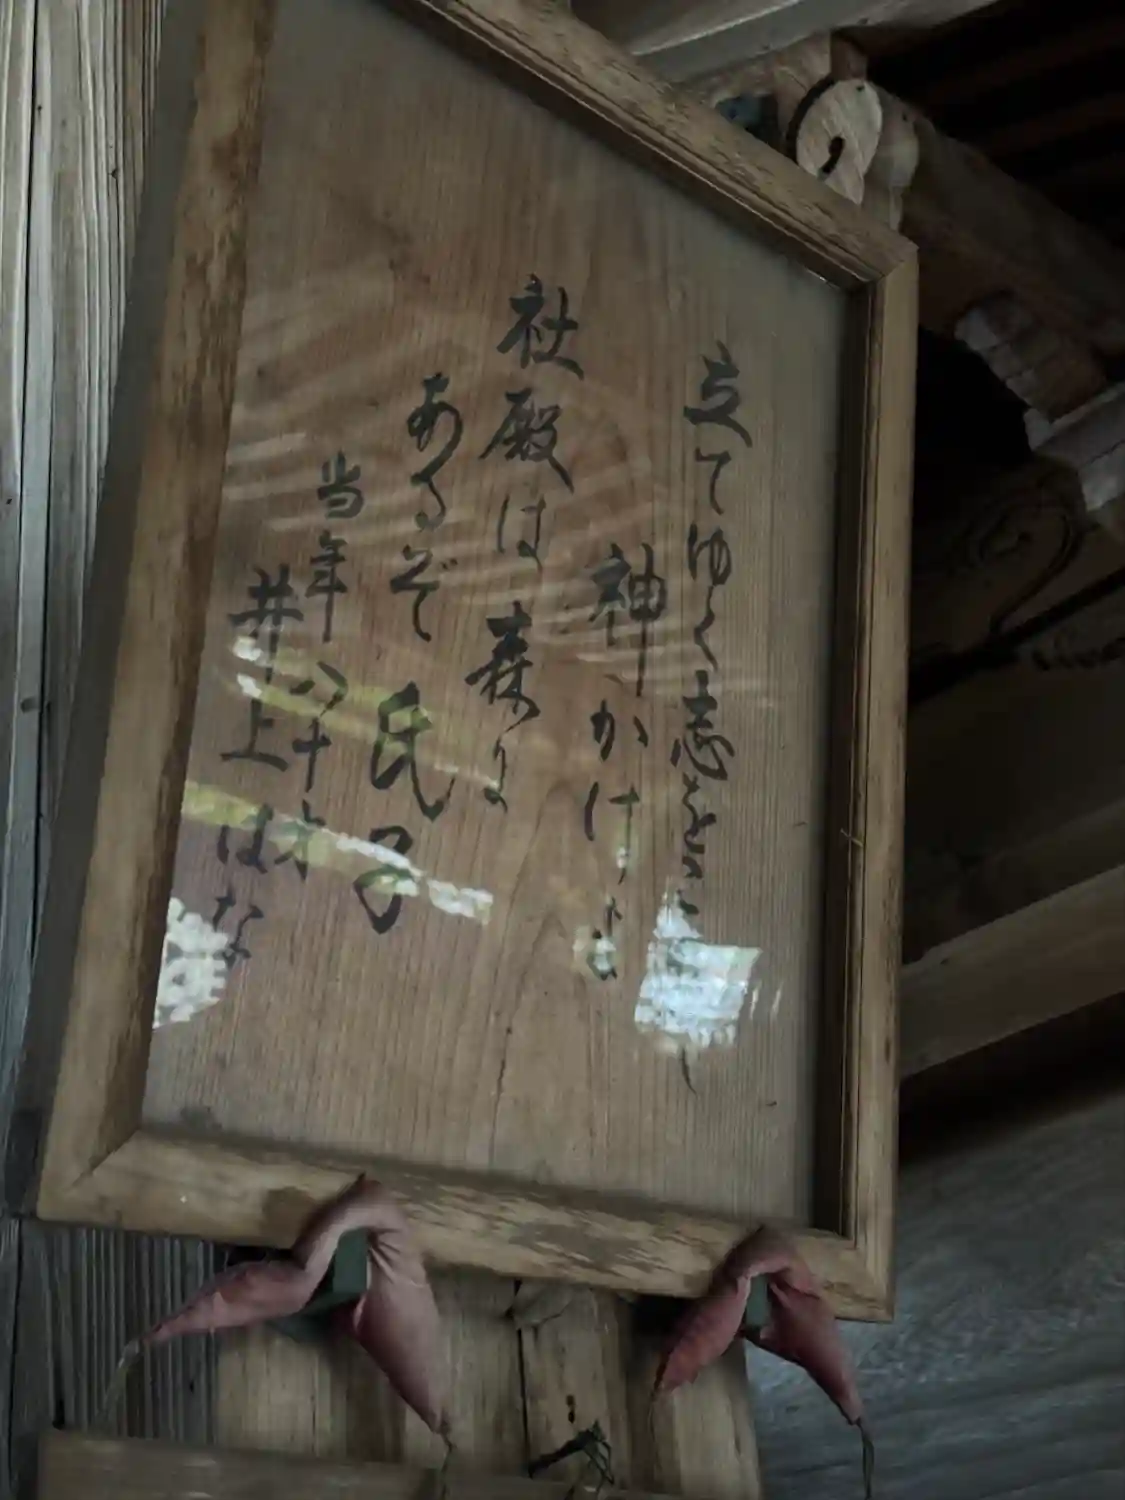 立てゆく志をこ
神かけよ
社殿は森に
あるぞ氏子
当年八十才
井上はな